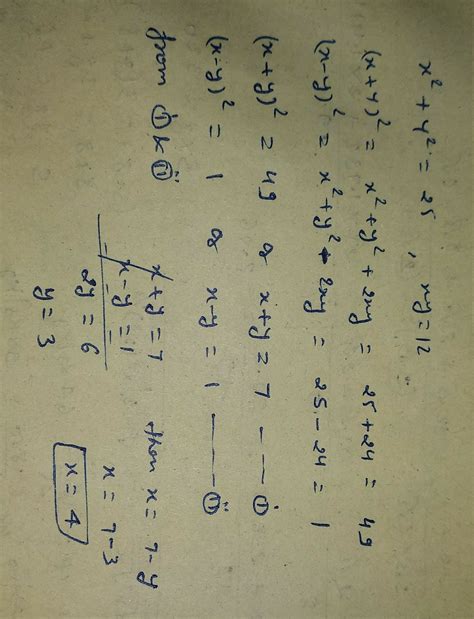 x² + y² = 25 , xy = 12
(x+y)² = x² + y² + 2xy = 25 + 24 = 49
(x-y)² = x² + y² - 2xy = 25 - 24 = 1
(x+y)² = 49 or x+y = 7 --- ①
(x-y)² = 1 or x-y = 1 --- ⑪
from ① & ⑪
x+y = 7
x-y = 1
2y = 6
y = 3
then x = 7-y
x = 7-3
x = 4